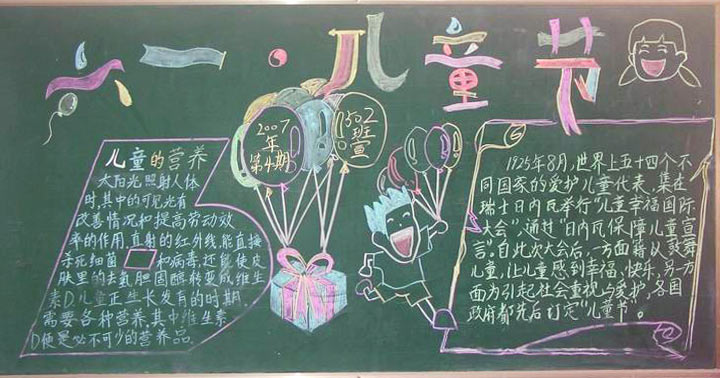 六一·儿童节
2007
年
第4期
1502
班
宣
儿童的营养
太阳光照射人体
时,其中的可见光有
改善情况和提高劳动效
率的作用,直射的红外线,能直接
杀死细菌和病毒,还能使皮
肤里的去氧胆固醇转变成维生
素D,儿童正生长发育的时期,
需要各种营养,其中维生素
D便是必不可少的营养品
1925年8月,世界上五十四个不
同国家的爱护儿童代表,集在
瑞士日内瓦举行"儿童幸福国际
大会",通过"日内瓦保障儿童宣
言",自此次大会后,一方面藉以鼓舞
儿童,让儿童感到幸福、快乐,另一方
面为引起社会重视与爱护,各国
政府都先后订定"儿童节"。